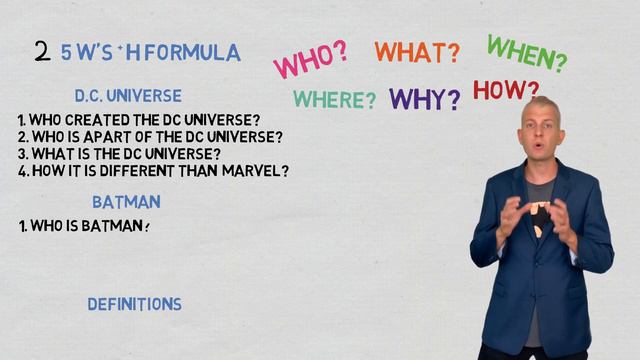 2 5 W'S + H FORMULA
WHO? WHAT? WHEN?
WHERE? WHY? HOW?
D.C. UNIVERSE
1. WHO CREATED THE DC UNIVERSE?
2. WHO IS APART OF THE DC UNIVERSE?
3. WHAT IS THE DC UNIVERSE?
4. HOW IT IS DIFFERENT THAN MARVEL?
BATMAN
1. WHO IS BATMAN?
DEFINITIONS